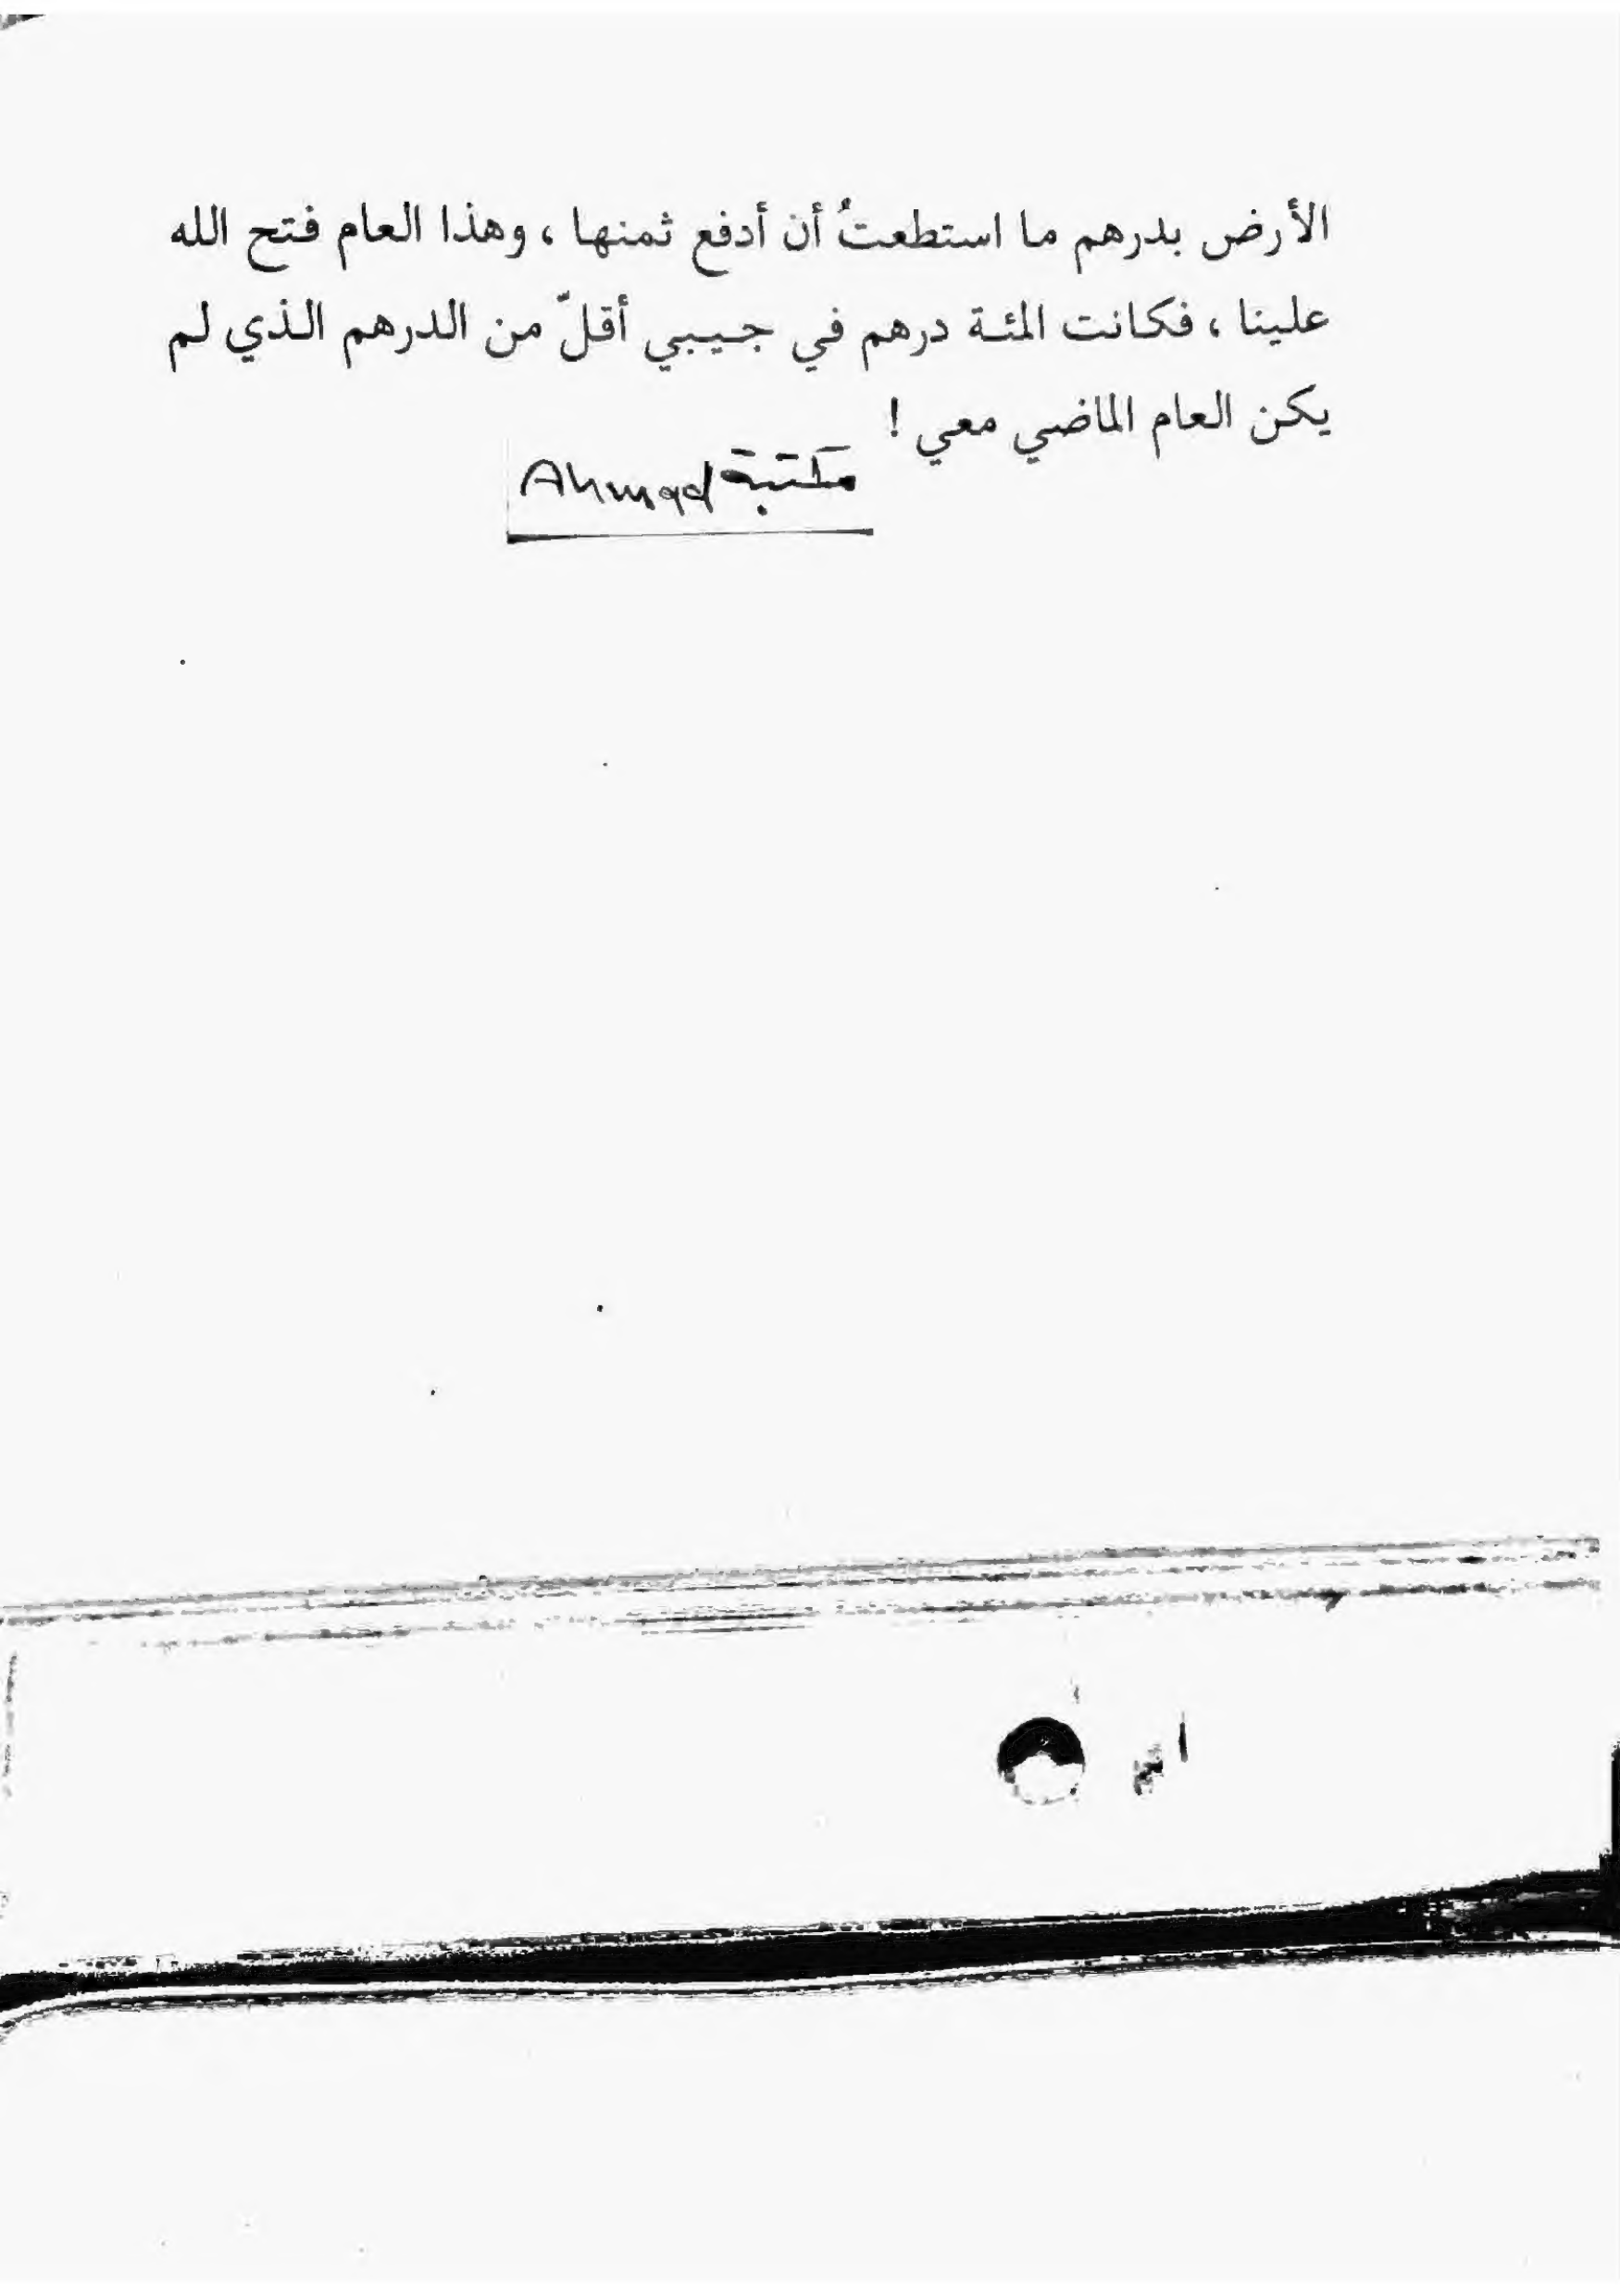 الأرض بدرهم ما استطعتُ أن أدفع ثمنها ، وهذا العام فتح الله
علينا ، فكانت المئة درهم في جيبي أقلّ من الدرهم الذي لم
يكن العام الماضي معي !
مكتبة Ahmad